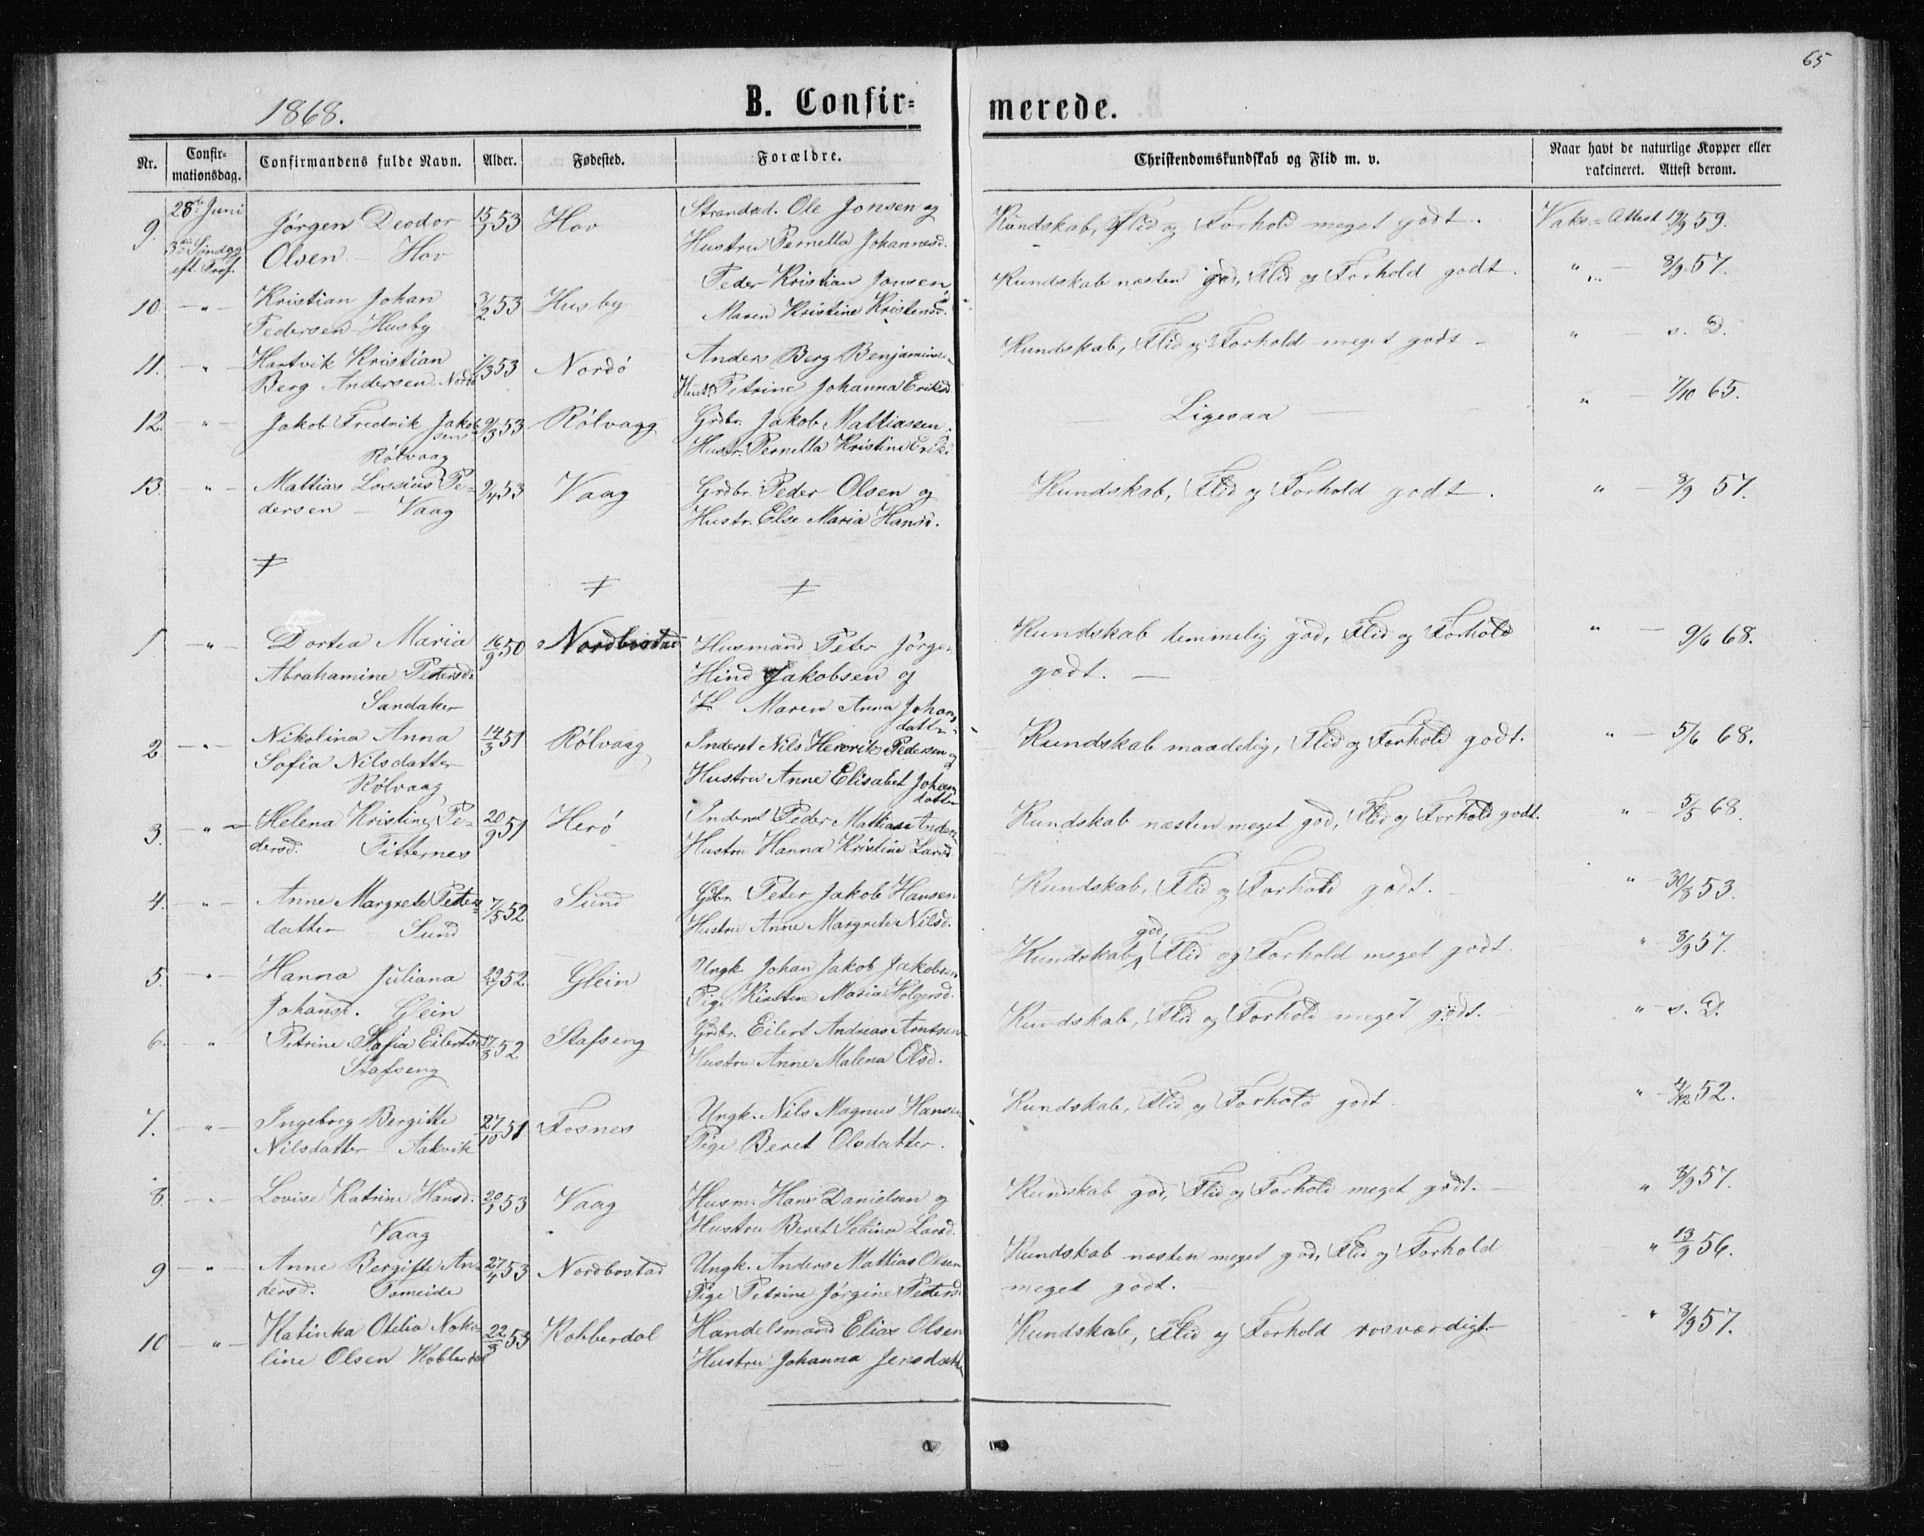 65
1868.
B. Confir=
merede.
Nr.
Confir-
mationsdag.
Confirmandens fulde Navn.
Alder.
Fødested.
Forældre.
Christendomskundskab og Flid m. v.
Naar havt de naturlige Kopper eller
vakcineret. Attest derom.
9. 28de Juni Jørgen Deodor 15/1 53 Hov Strandsd. Ole Jonsen og Kundskab, Flid og Forhold meget godt. Vaks= Attest 19/9 59.
3die Søndag Olsen – Hov Hustru Pernella Johannesd.
eft. Tref.
10. – " – Kristian Johan 3/2 53 Husby Peder Kristian Jonsen, Kundskab næsten god, Flid og Forhold godt. " – 8/9 57.
Pedersen Husby Maren Kristine Kristensd.
11. – " – Hartvik Kristian 7/3 53 Nordø Anders Berg Benjamins. Kundskab, Flid og Forhold meget godt – " – s. D.
Berg Andersen Nordø Hustr. Petrine Johanna Eriksd
12. – " – Jakob Fredrik Jakob= 9/3 53 Rølvagg Grdbr. Jakob Mattiassen. – Ligesaa – " – 7/10 65.
sen
Rølvaag Hustr. Pernella Kristine Eriksd
13. " Mattias Lossius Pe- 9/4 53 Vaag Grdbr. Peder Olsen og Kundskab, Flid og Forhold godt. " 8/9 57.
dersen – Vaag Hustr. Else Maria Hansd.
1 – " – Dortea Maria 16/9 50 Nordbostad Husmand Peter Jørge. Kundskab temmelig god, Flid og Forhold " – 9/6 68.
Abrahamine Petersd. Hind Jakobsen og godt. –
Sandaker H Maren Anna Johans
datter
2. – " – Nikolina Anna 14/3 51 Rølvaag Inderst Nils Henrik Pedersen og Kundskab maadelig, Flid og Forhold godt. " – 5/6 68.
Sofia Nilsdatter Hustru Anne Elisabet Johan
datter
Rølvaag
3. – " – Helena Kristine Pe- 20/9 51 Herø Inderst Peder Mattias Anders Kundskab næsten meget god, Flid og Forhold godt. " – 5/5 68.
dersd. Titternes Hustru Hanna Kristine Larsd.
4. – " – Anne Margrete Peter= 7/5 52 Sund Gdbr. Peter Jakob Hansen Kundskab, Flid og Forhold godt. – " – 30/8 53.
datter Sund Hustru Anne Margrete Nilsd.
5. – " – Hanna Juliana 29/7 52 Glein Ungk. Johan Jakob Jakobsen Kundskab god, Flid og Forhold meget godt. " – 8/9 57.
Johansd. Glein Pige Kirsten Maria Holgersd.
6. – " Petrine Sofia Eilertsd 17/3 52 Stafseng Grdbr. Eilert Andreas Arntsen Kundskab, Flid og Forhold meget godt. – " – s. D.
Stafseng Hustru Anne Malena Olsd.
7. – " – Ingeborg Bergitte 27/10 51 Fosnes Ungk. Nils Magnus Hansen Kundskab, Flid og Forhold godt " – 4/12 52.
Nilsdatter Aakvik Pige Beret Olsdatter.
8. " – Lovise Katrine Hansd. 20/1 53 Vaag Husm. Hans Danielsen og Kundskab god, Flid og Forhold meget godt. – " 8/9 57.
Vaag Hustru Beret Sebina Larsd.
9 – " – Anne Bergitte An- 27/4 53 Nordbostad Ungk. Anders Mattias Olsen Kundskab næsten meget god, Flid og Forhold " 13/9 56.
dersd. Pige Petrine Jørgine Peders meget godt. –
10 – " – Katinka Otelia Niko- 22/3 53 Kobberdal Handelsmand Elias Olsen Kundskab, Flid og Forhold rosværdigt – " 8/9 57.
line Olsen Kobberdal Hustru Johanna Jensdatt